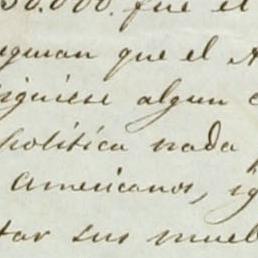 50.000. fue el
eguran que el A
iguiese algun c
politica nada
Americanos, ig
tar sus muebl